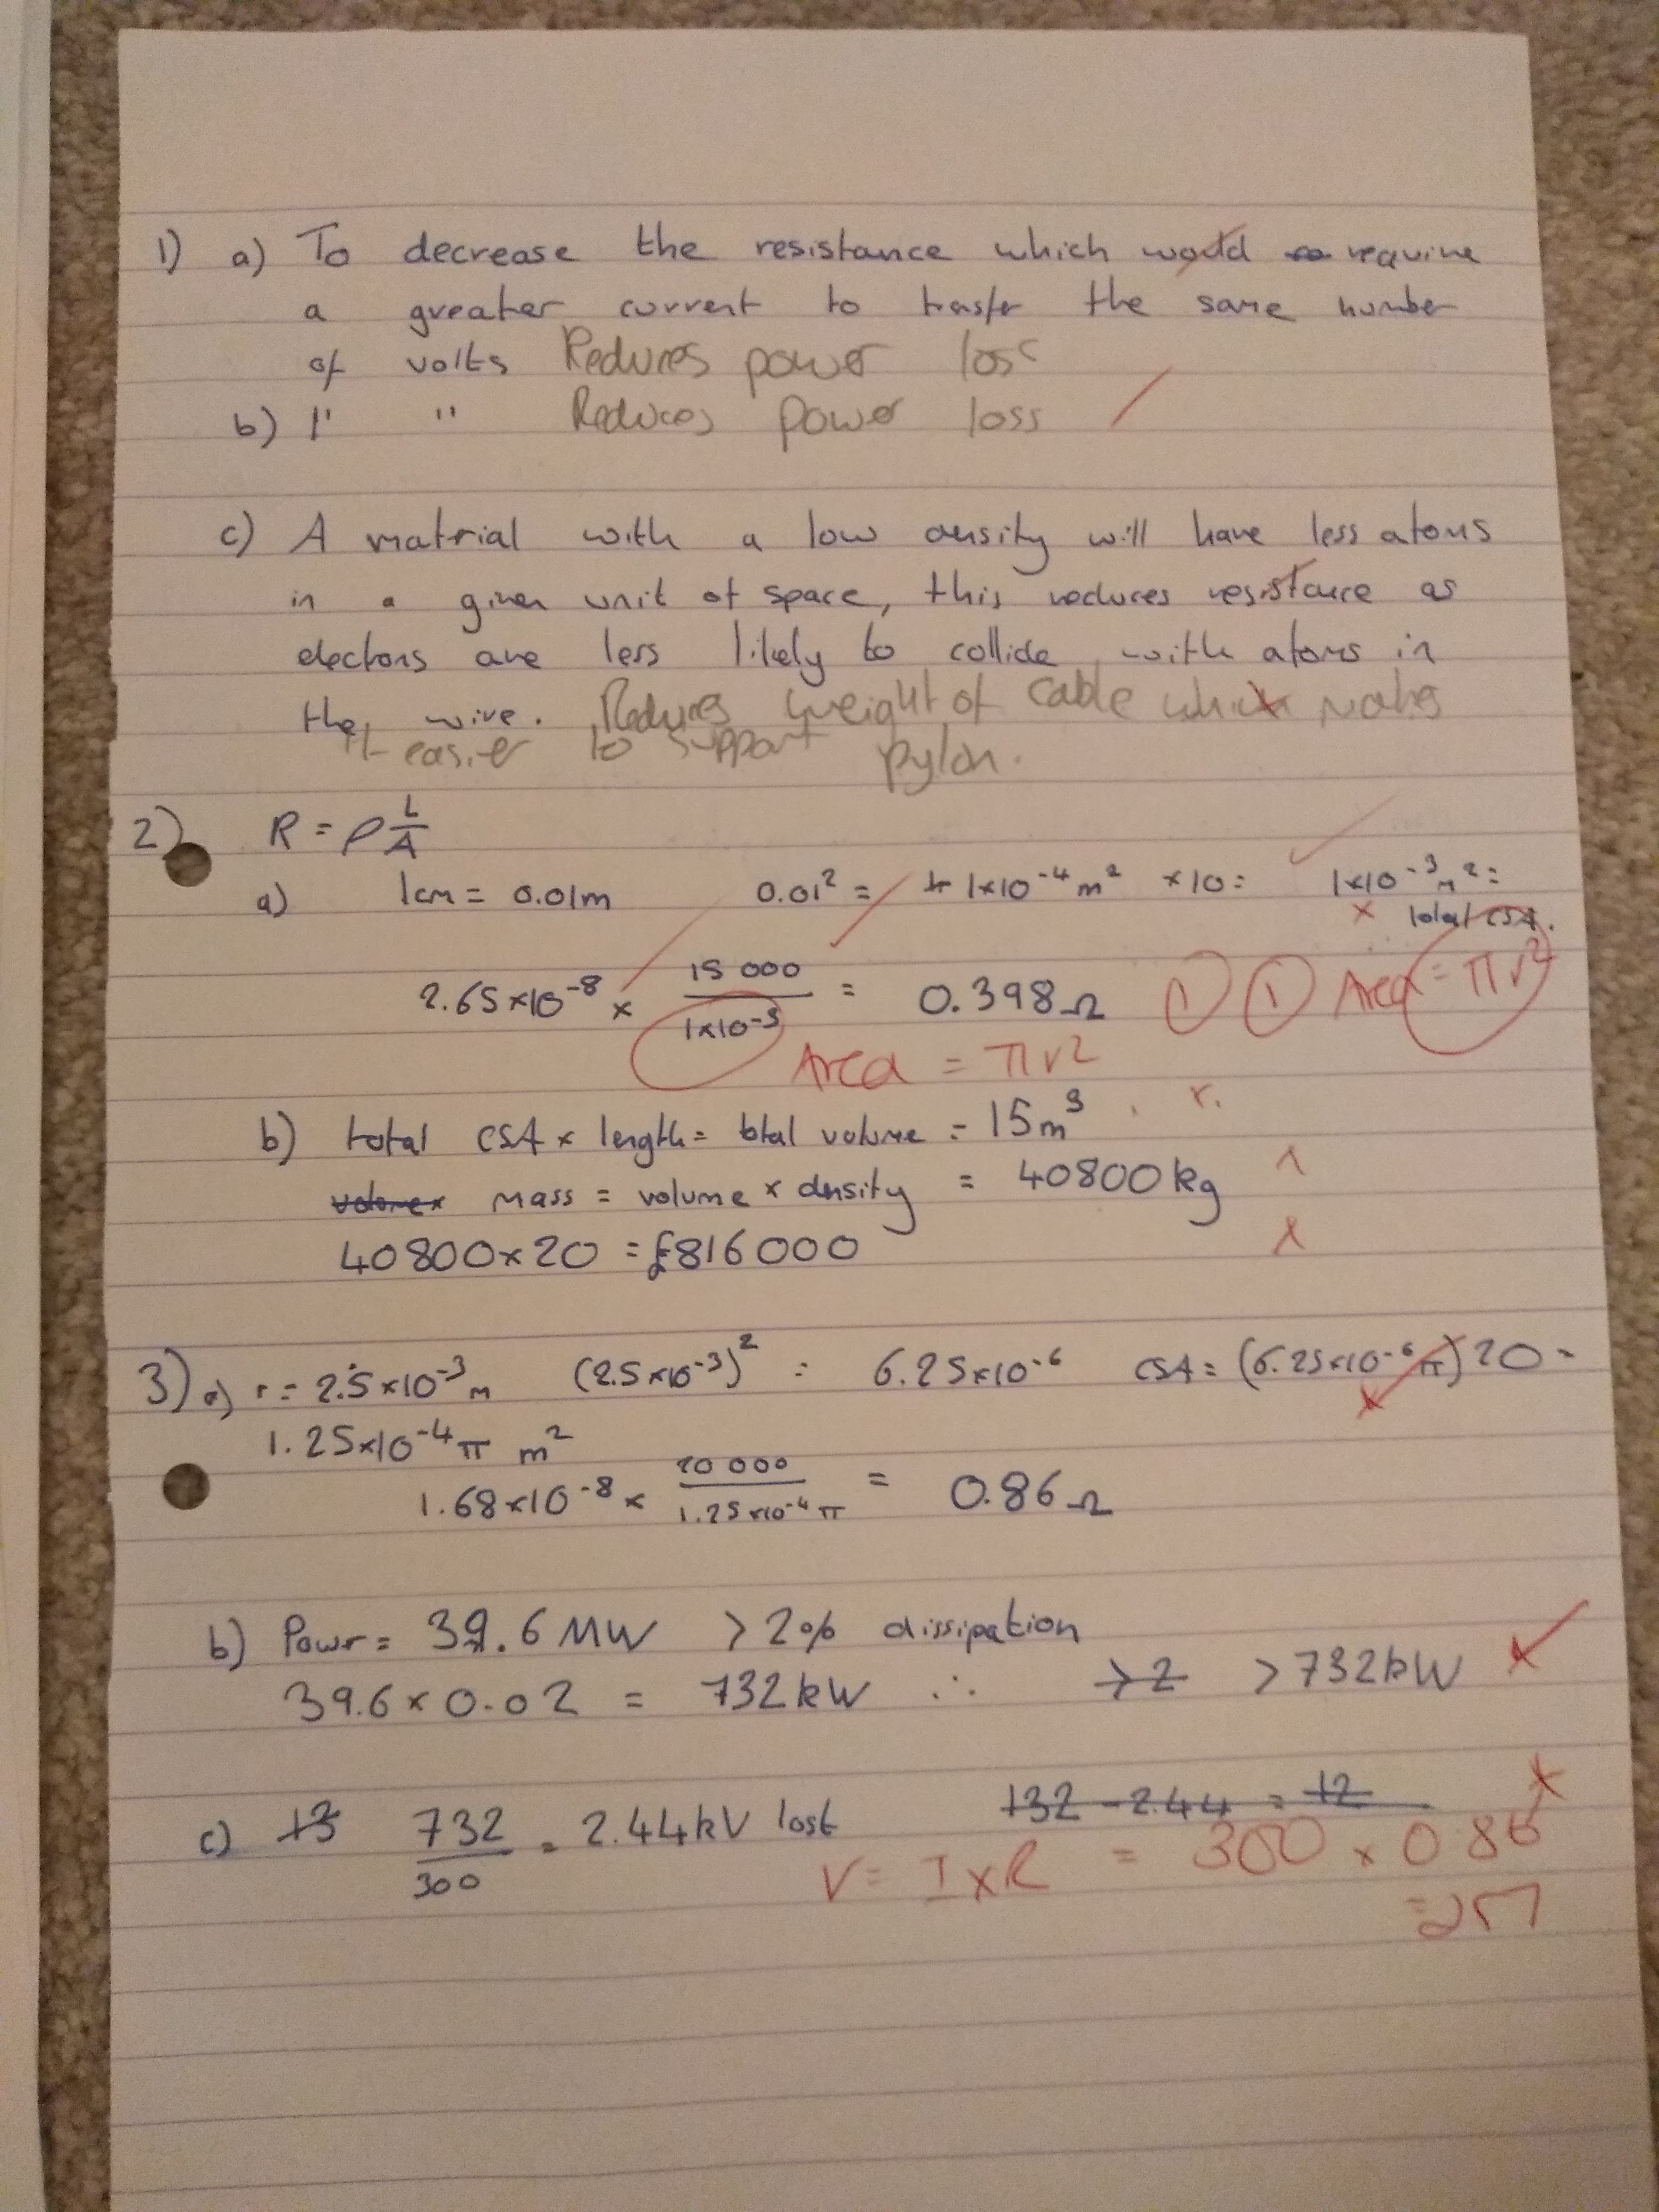 1) a) To decrease the resistance which would require
a greater current to the same number
of volts Reduces power loss
b) 1' " Reduces power loss
c) A matrial with a low density will have less atoms
in a given unit of space, this reduces resistance as
electrons are less likely to collide with atoms in
the wire. Reduces weight of cable which makes
it easier to support pylon.
2) R = ρ L/A
a) 1cm = 0.01m 0.01² = 1×10⁻⁴ m² ×10 = 1×10⁻³ m² =
total CSA.
2.65×10⁻⁸ × 15 000 / 1×10⁻³ = 0.398Ω 1 1 Area = πr²
Area = πr²
b) total CSA × length = total volume = 15m³ r.
volume× mass = volume × density = 40800kg
40800×20 = £816000
3) a) r = 2.5×10⁻³ m (2.5×10⁻³)² = 6.25×10⁻⁶ CSA = (6.25×10⁻⁶ π) 20 =
1.25×10⁻⁴ π m²
1.68×10⁻⁸ × 20 000 / 1.25×10⁻⁴ π = 0.86Ω
b) Powr = 39.6 MW > 2% dissipation
39.6 × 0.02 = 732kW ∴ >2 > 732kW
c) 13 732/300 = 2.44kV lost 132 - 2.44 = 12
V = I × R = 300 × 0.86
= 257